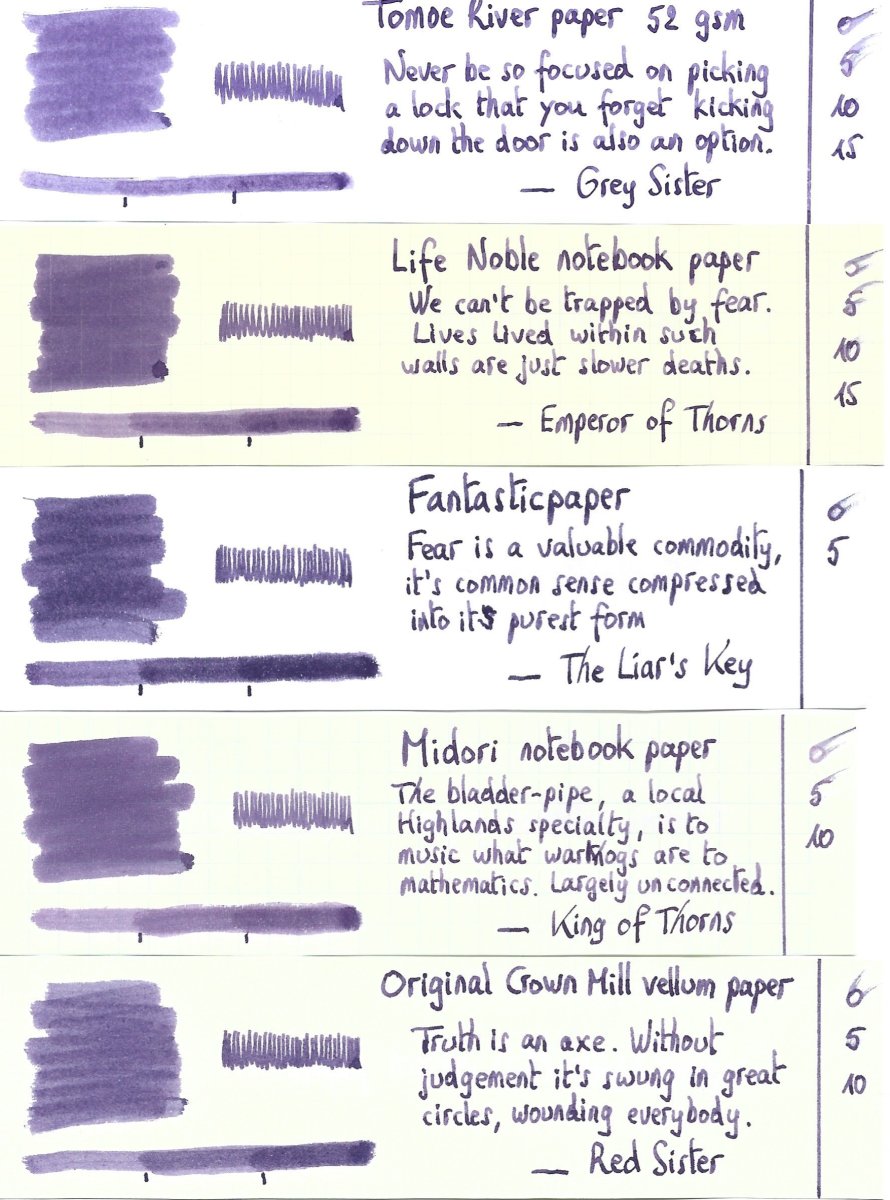 Tomoe River paper 52 gsm
Never be so focused on picking
a lock that you forget kicking
down the door is also an option.
— Grey Sister
0
5
10
15
Life Noble notebook paper
We can't be trapped by fear.
Lives lived within such
walls are just slower deaths.
— Emperor of Thorns
0
5
10
15
Fantasticpaper
Fear is a valuable commodity,
it's common sense compressed
into its purest form
— The Liar's Key
0
5
Midori notebook paper
The bladder-pipe, a local
Highlands specialty, is to
music what warthogs are to
mathematics. Largely unconnected.
— King of Thorns
0
5
10
Original Crown Mill vellum paper
Truth is an axe. Without
judgement it's swung in great
circles, wounding everybody.
— Red Sister
0
5
10